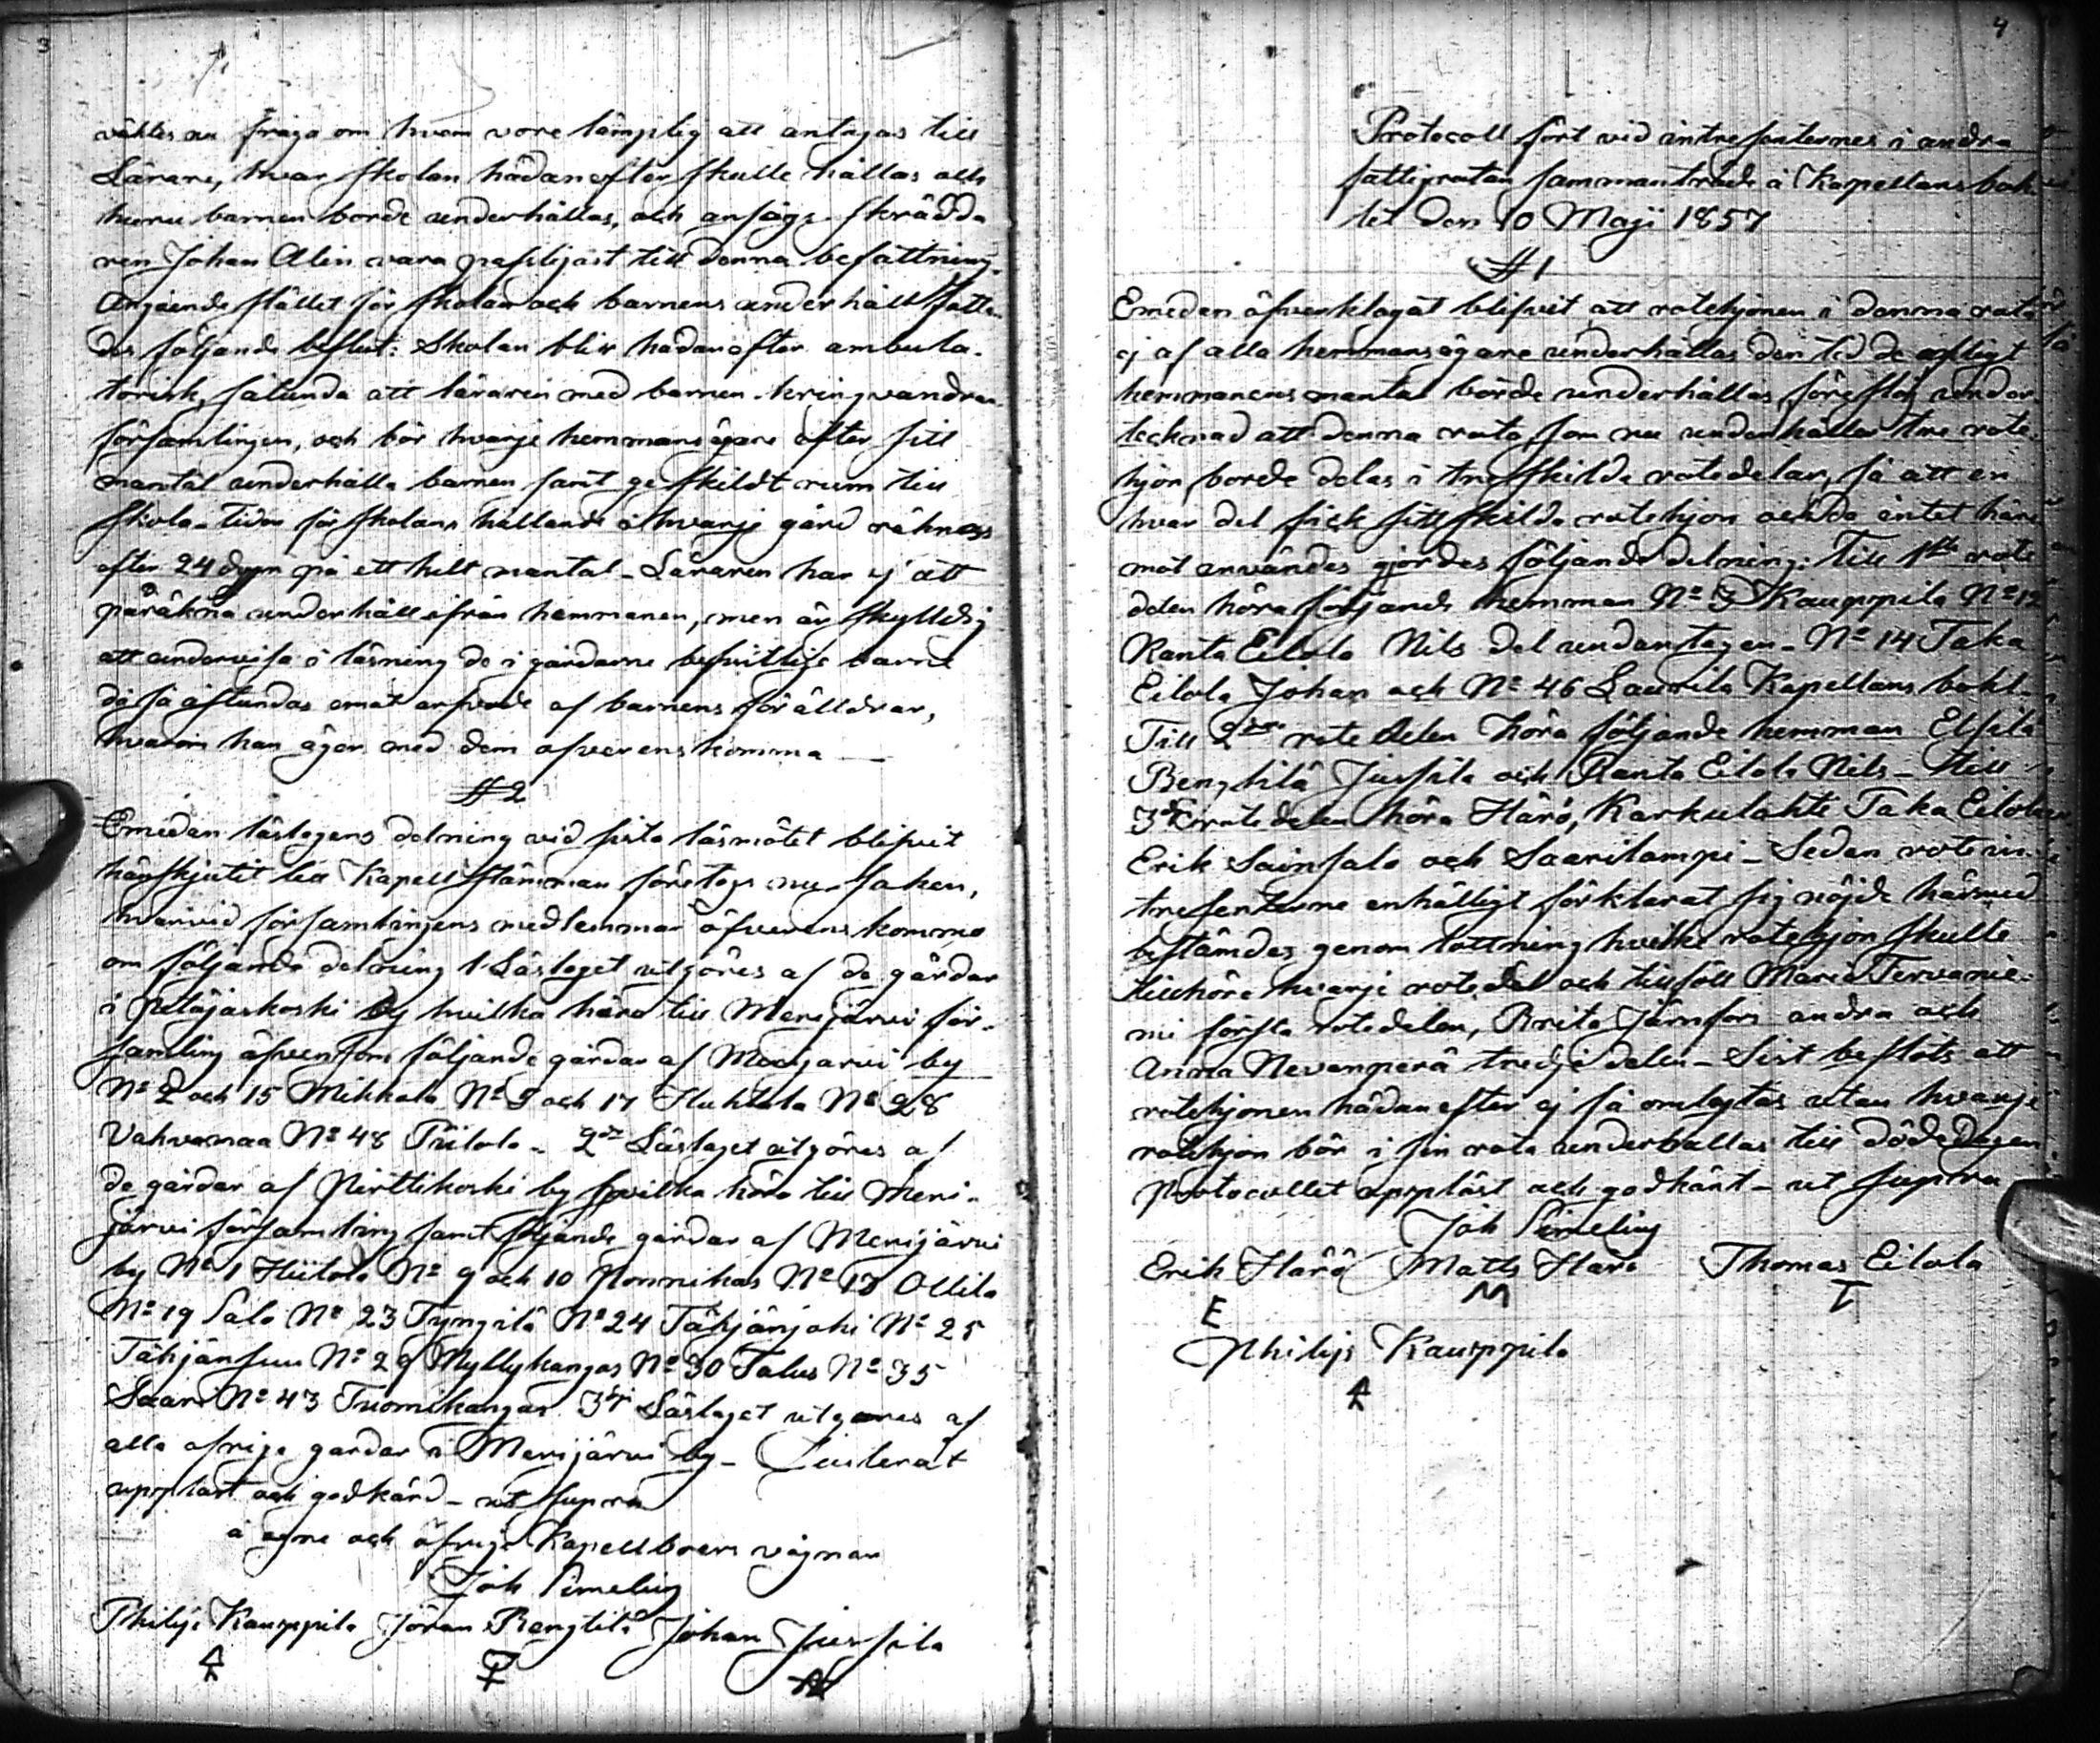 3
väktes nu fråga om hvem vore lämplig att antagas till
Lärare, hvar skolan hädanefter skulle hållas och
huru barnen borde underhållas, och ansågs skrädda
ren Johan Alin vara passligast till denna befattning.
Angående stället för skolan och barnens underhåll fatta-
des följande beslut: Skolan blir hädanefter ambula-
torisk, sålunda att läraren med barnen kringvandrar
församlingen, och bör hvarje hemmansägare efter sitt
mantal underhålla barnen samt ge skildt rum till
skola. Tiden för skolans hållande å hvarje gård räknas
efter 24 dygn på ett helt mantal. Läraren har ej att
påräkna underhåll ifrån hemmanen, men är skylldig
att undervisa i läsning de i gårdarne befintlige barn
då så åstundas emot arfvode af barnens förälldrar,
hvarom han äger med dem öfverenskomma —
§ 2
Emedan läslagens delning vid sista läsmötet blifvit
hänskjutit till Kapellstämman företogs nu saken,
hvarvid församlingens medlemmar öfverenskommo
om följande delning 1 Läslaget utgöres af de gårdar
i Petäjaskoski by hvilka höra till Merijärvi för-
samling äfvensom följande gårdar af Merijarvi by
No 2 och 15 Mikkola No 3 och 17 Huhtala No 28
Vahvamaa No 48 Piilola - 2dra Läslaget utgöres af
de gårdar af Pirttikoski by hvilka höra till Meri-
järvi församling samt följande gårdar af Merijärvi
by No 1 Hiitola No 9 och 10 Ponnikas No 18 Ollila
No 19 Salo No 23 Tyngilä No 24 Tähjänjoki No 25
Tähjänsuu No 29 Myllykangas No 30 Talus No 35
Saari No 43 Tuomikangas 3dje Läslaget utgöres af
alla öfriga gårdar i Merijärvi by -
uppläst och godkänd - ut supra
å egne och öfrige Kapellboers vägnar
Joh Simelius
Philip Kauppila Jöran Bengtilä Johan Juusila
4
Protocoll fört vid intressenternes i andra
fattigrotan sammanträde å Kapellans bol-
let den 10 Maji 1857
§ 1
Emedan öfverklagat blifvit att rotehjonen i denna rota
ej af alla hemmansägare underhållas den tid de enligt
hemmanens mantal borde underhållas, föreslog under-
tecknad att denna rota, som nu underhåller tre rote-
hjon, borde delas i tre skilda rotedelar, så att en
hvar del fick sitt skilda rotehjon och då intet häre
mot invändes gjordes följande delning: Till 1sta rote
delen höra följande hemman No 3 Kauppila No 12
Ranta Eilola Nils del undantagen - No 14 Taka
Eilola Johan och No 46 Laurila Kapellans bohl.
Till 2dra rotedelen höra följande hemman Elsilä
Bengtilä Juusila och Ranta Eilola Nils - till
3dje rotedelen höra Härö, Karkulahti Taka Eilola
Erik Sainsalo och Saarilampi - Sedan rotein-
tressenterne enhälligt förklarat sig nöjde härmed
bestämdes genom lottning hvilket rotehjon skulle
tillhöra hvarje rotedel och tillföll Maria Tervanie-
mi första rotedelen, Brita Järnfors andra och
Anna Nevanperä tredje delen - Sist beslöts att
rotehjonen hädanefter ej få omlottas utan hvarje
rotehjon bör i sin rota underhållas till dödedagen
Protocollet uppläst och godkänt - ut supra
Joh Simelius
Erik Härö Matts Härö Thomas Eilola
E M T
Philip Kauppila